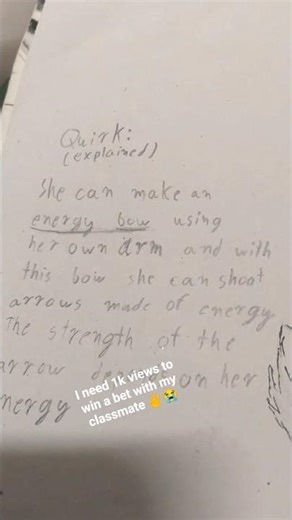 Quirk:
(explained)
She can make an
energy bow using
her own arm and with
this bow she can shoot
arrows made of energy
The strength of the
arrow on her
energy
I need 1k views to
win a bet with my
classmate ✋😭